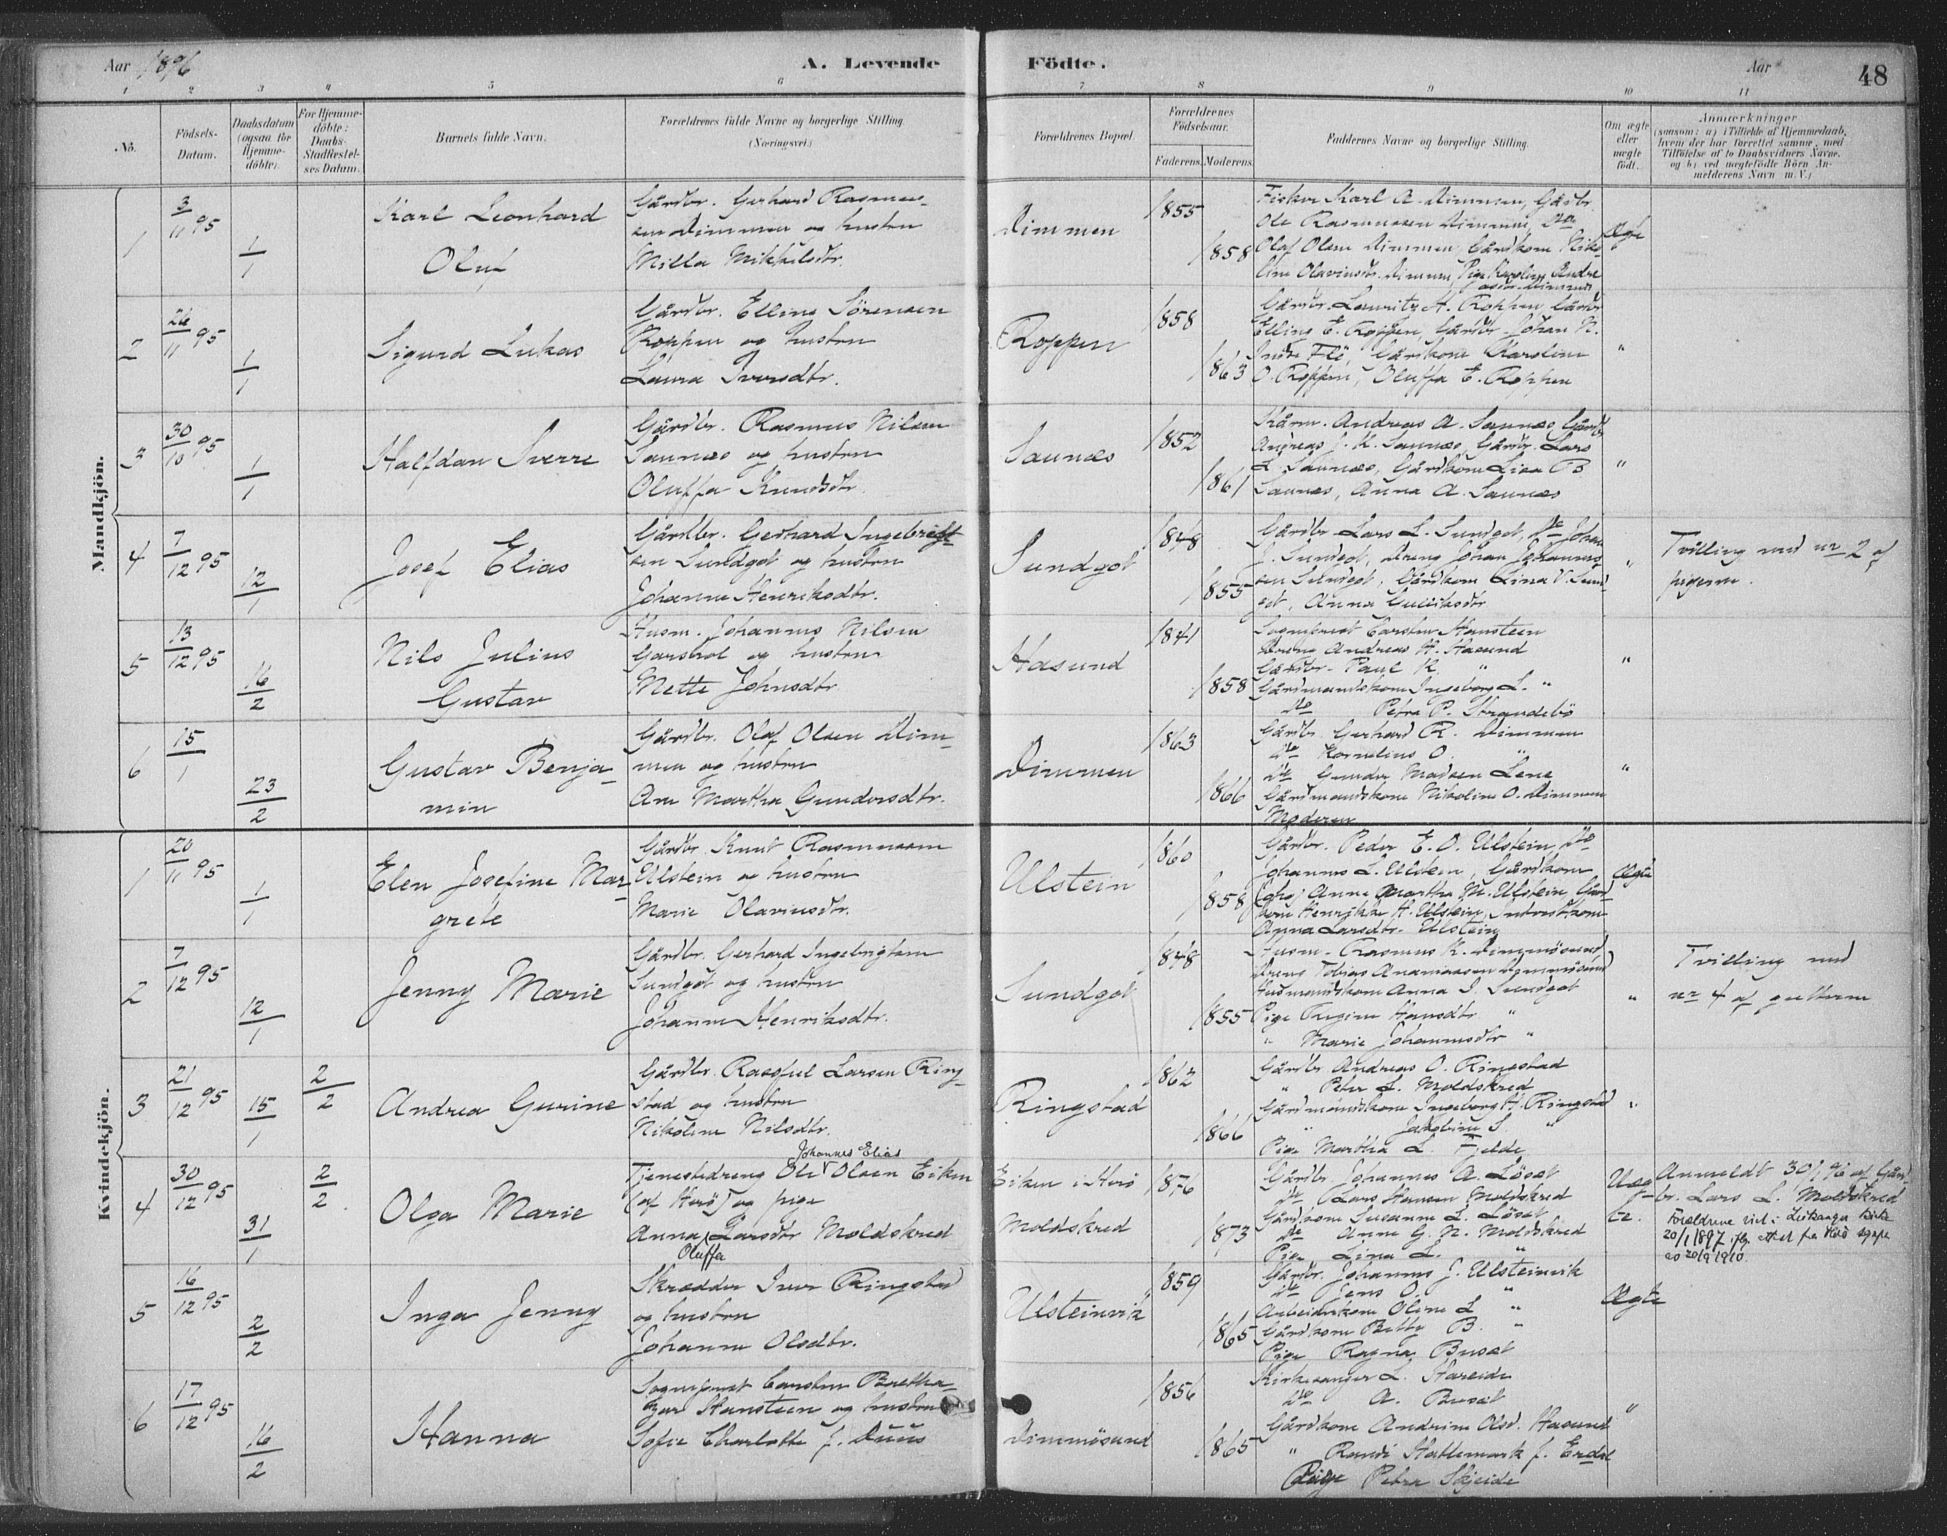 Aar 1896
A. Levende Födte.
Aar
48
1 2 3 4 5 6 7 8 9 10 11
No.
Födsels-
Datum.
Daabsdatum
(ogsaa for
Hjemme-
döbte).
For Hjemme-
döbte:
Daabs-
Stadfæstel-
ses Datum.
Barnets fulde Navn.
Forældrenes fulde Navne og borgerlige Stilling.
(Næringsvei.)
Forældrenes Bopæl.
Forældrenes
Födselsaar.
Faderens. Moderens.
Faddernes Navne og borgerlig Stilling.
Om ægte
eller
uægte
födt.
Anmærkninger
(saasom: a) i Tilfælde af Hjemmedaab,
hvem der har forrettet samme, med
Tilföielse af to Daabsvidners Navne,
og b) ved uægtefödte Börn An-
melderens Navn m. V.)
Mandkjön.
1
3/11 95
1/1
Karl Leonhard
Oluf
Gårdbr. Gerhard Rasmus-
sen Dimmen og hustru
Milla Mikkelsdtr.
Dimmen
1855
1858
Fisker Karl A. Dimmen, Gårdbr.
Ole Rasmussen Dimmen, do
Olaf Olsen Dimmen, Gårdkone Niko-
line Olavinsdtr. Dimmen, Pige Karoline Andre
Dimmen
Ægte
2
26/11 95
1/1
Sigurd Lukas
Gårdbr. Elling Sörensen
Roppen og hustru
Laura Iversdtr.
Roppen
1858
1863
Gårdbr. Lauritz A. Roppen, Gårdbr
Elling E. Roppen, Gårdbr. Johan N.
Indre Flö, Gårdkone Karoline
O. Roppen, Oluffa E. Roppen
"
3
30/10 95
1/1
Halfdan Sverre
Gårdbr. Rasmus Nilsen
Saunæs og hustru
Oluffa Knudsdtr.
Saunæs
1852
1861
Andreas A. Saunæs, Gårdbr
Andreas J. K. Saunæs, Gårdbr. Lars
L. Saunæs, Gårdkone Lisa B
Saunæs, Anna A. Saunæs
"
4
7/12 95
12/1
Josef Elias
Gårdbr. Gerhard Ingebrigt-
sen Sundgot og hustru
Johanne Henriksdtr.
Sundgot
1848
1855
Gårdbr Lars L. Sundgot, do Johan
J. Sundgot, dreng Johan Johannes-
sen Sundgot, Gårdkone Lina V. Sund-
got, Anna Gulliksdtr
"
Tvilling med nr 2 af
pigerne.
5
13/12 95
16/2
Nils Julius
Gustav
Husm. Johannes Nilsen
Garshol og hustru
Mette Johnsdtr
Hasund
1841
1858
Sogneprest Carsten Hansteen
Dreng Andreas H. Hasund
Gårdbr. Paul K. "
Gårdmandskone Ingeborg L. "
do Petra P. Strandebö
"
6
15/1
23/2
Gustav Benja-
min
Gårdbr. Olaf Olsen Dim-
men og hustru
Ane Martha Gundersdtr.
Dimmen
1863
1866
Gårdbr. Gerhard R. Dimmen
do Kornelius O. "
do Gunder Madsen Lene
Gårdmandskone Nikoline O. Dimmen
Moderen
"
Kvindekjön.
1
20/11 95
1/1
Elen Josefine Mar-
grete
Gårdbr. Knut Rasmussen
Ulstein og hustru
Marie Olavinsdtr.
Ulstein
1860
1858
Gårdbr. Peder E. O. Ulstein, do
Johannes L. Ulstein, Gårdkone
Anne Martha M. Ulstein, Gård-
kone Henrikke H. Ulstein, Inderstkone
Anna Larsdtr. Ulstein
Ægte
2
7/12 95
12/1
Jenny Marie
Gårdbr. Gerhard Ingebrigtsen
Sundgot og hustru
Johanne Henriksdtr.
Sundgot
1848
1855
Husm. Rasmus K. Dimmösund
Dreng Tobias Dimmösund
Husmandskone Anna J. Sundgot
Pige Regine Hansdtr "
" Marie Johannesdtr "
"
Tvilling med
nr 4 af gutterne
3
21/12 95
15/1
2/2
Andrea Gurine
Gårdbr. Larsen Ring-
stad og hustru
Nikoline Nilsdtr.
Ringstad
1862
1866
Gårdbr Andreas O. Ringstad
" Peter L. Moldskred
Gårdmandskone Ingeborg H. Ringstad
" Jakobine S. "
Pige Martha L. Fjelde
"
4
30/12 95
31/1
2/2
Olga Marie
Johannes Elias
Tjenestedreng Ole Olsen Eiken
(af Herö) og pige
Anna Larsdtr Moldskred
Oluffa
Eiken i Herö
Moldskred
1876
1873
Gårdbr. Johannes A. Löset
do Lars Hansen Moldskred
Gårdkone Susanne L. Löset
do Anne G. N. Moldskred
Pige Lina L. "
Uæg-
te.
Anmeldt 30/1 96 af Gård-
br. Lars L. Moldskred
Forældrene viet i Leikanger kirke
20/1 1897 ifg. attest fra Herö sogne
20/9 1910.
5
16/12 95
2/2
Inga Jenny
Skrædder Iver Ringstad
og hustru
Johanne Olsdtr.
Ulsteinvik
1859
1865
Gårdbr. Johannes J. Ulsteinvik
do Jens O. "
Arbeiderkone Oline L "
Gårdkone Bitte B. "
Pige Ragna Buset
Ægte
6
17/12 95
16/2
Hanna
Sogneprest Carsten Baltha-
zar Hansteen og hustru
Sofie Charlotte f. Duus
Dimmösund
1856
1865
Kirkesanger L. Hareide
do A. Buset
Gårdkone Andrine Olsd. Hasund
" Randi Hattemark f. Erdal
Pige Petra Skjeide
"